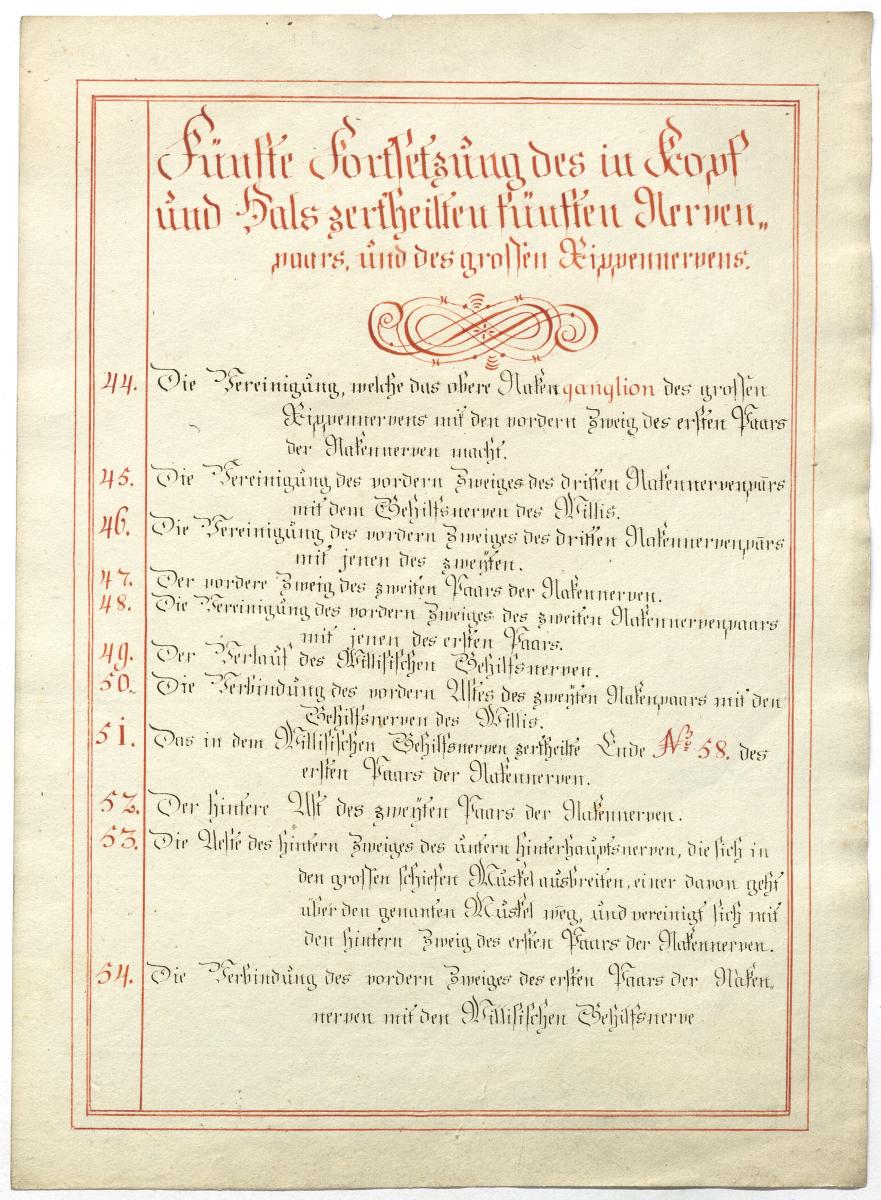 Fünfte Fortsetzung des in Kopf
und Hals zertheilten fünften Nerven„
paars, und des grossen Rippennervens.
44. Die Vereinigung, welche das obere Nakenganglion des grossen
Rippennervens mit den vordern Zweig des ersten Paars
der Nakennerven macht.
45. Die Vereinigung des vordern Zweiges des dritten Nakennervenpārs
mit dem Behilfsnerven des Willis.
46. Die Vereinigung des vordern Zweiges des dritten Nakennervenpārs
mit jenen des zweÿten.
47. Der vordere Zweig des zweiten Paars der Nakennerven.
48. Die Vereinigung des vordern Zweiges des zweiten Nakennervenpaars
mit jenen des ersten Paars.
49. Der Verlauf des Willisischen Behilfsnerven.
50. Die Verbindung des vordern Astes des zweÿten Nakenpaars mit den
Behilfsnerven des Willis.
51. Das in dem Willisischen Behilfsnerven zertheilte Ende Nº 58. des
ersten Paars der Nakennerven.
52. Der hintere Ast des zweÿten Paars der Nakennerven.
53. Die Aeste des hintern Zweiges des untern hinterhauptsnerven, die sich in
den grossen schiefen Muskel ausbreiten, einer davon geht
über den genanten Muskel weg, und vereinigt sich mit
den hintern Zweig des ersten Paars der Nakennerven.
54. Die Verbindung des vordern Zweiges des ersten Paars der Naken„
nerven mit den Willisischen Behilfsnerve